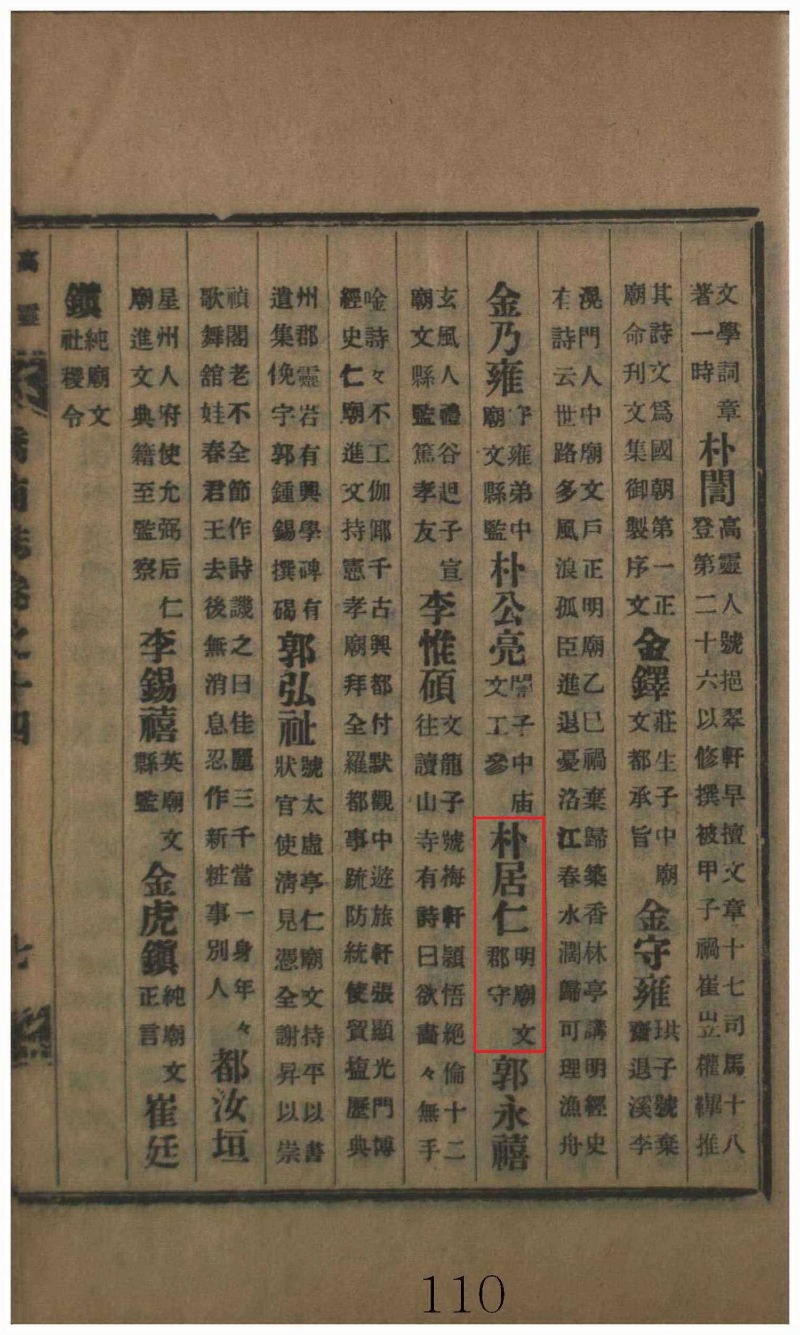 文學詞章著一時朴誾高靈人號挹翠軒早擅文章十七司馬十八登第二十六以修撰被甲子禍崔岦權鞸推
其詩文爲國朝第一正廟命刊文集御製序文金鐸莊生子中廟文都承旨金守雍珙子號棄齋退溪李
滉門人中廟文戶正明廟乙巳禍棄歸築香林亭講明經史有詩云世路多風浪孤臣進退憂洛江春水濶歸可理漁舟
金乃雍守雍弟中廟文縣監朴公亮誾子中庙文工參朴居仁明廟文郡守郭永禧
玄風人禮谷子宣廟文縣監篤孝友李惟碩文龍子號梅軒穎悟絕倫十二往讀山寺有詩曰欲畵々無手
唫詩々不工伽倻千古興都付默觀中遊旅軒張顯光門博經史仁廟進文持憲孝廟拜全羅都事疏防統使貿歷典
州郡靈岩有興學碑有遺集俛宇郭鍾錫撰碣郭弘祉號太虛亭仁廟文持平以書狀官使淸見憑全謝昇以崇
禎閣老不全節作詩譏之曰佳麗三千當一身年々歌舞舘娃春君王去後無消息忍作新粧事別人都汝垣
星州人府使允弼后仁廟進文典籍至監察李錫禧英廟文縣監金虎鎭純廟文正言崔廷
鎭純廟文社稷令
高靈 嶠南誌卷之十四 七
110